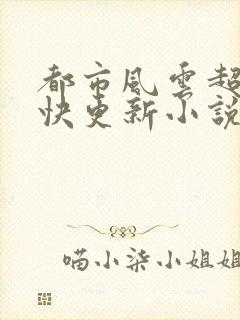 都市風雲超
快更新小說
喵小柒小姐姐